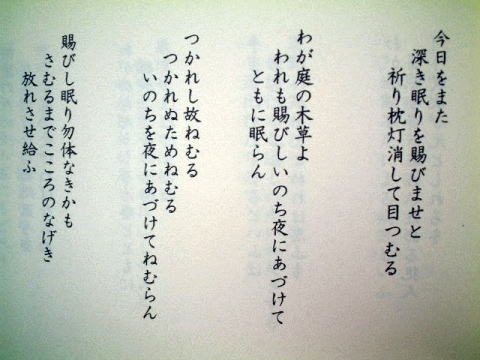 今日をまた
深き眠りを賜びませと
祈り枕灯消して目つむる
わが庭の木草よ
われも賜びしいのち夜にあづけて
ともに眠らん
つかれし故ねむる
つかれぬためねむる
いのちを夜にあづけてねむらん
賜びし眠り勿体なきかも
さむるまでこころのなげき
放れさせ給ふ